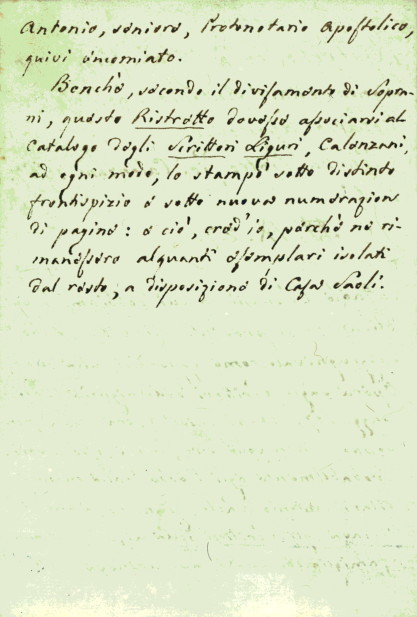 Antonio, seniore, Protonotario Apostolico,
quivi encomiato.
Benchè, secondo il divisamento di Sopra-
ni, questo Ristretto dovesse associarsi al
Catalogo degli Scrittori Liguri, Calenzani,
ad ogni modo, lo stampò sotto distinto
frontispizio e sotto nuova numerazion
di pagine: e ciò, cred'io, perchè ne ri-
manessero alquanti esemplari isolati
dal resto, a disposizione di Casa Saoli.